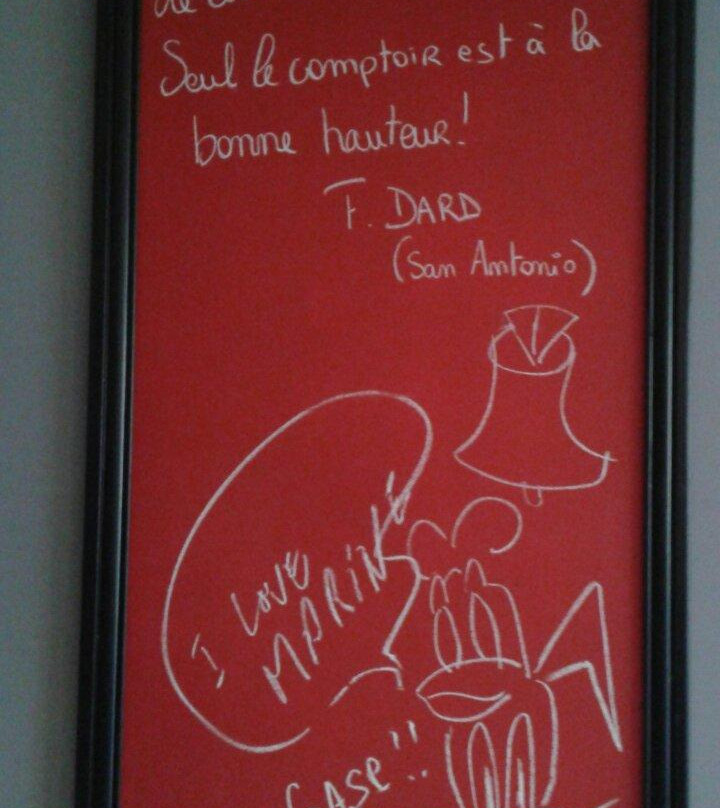 Seul le comptoir est à la
bonne hauteur!
F. DARD
(San Antonio)
I LOVE
MARINE